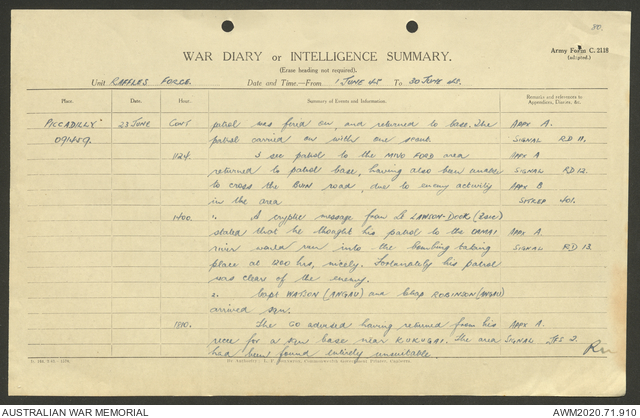 80.
Army Form C. 2118
(adapted.)
WAR DIARY or INTELLIGENCE SUMMARY.
(Erase heading not required).
Unit RAFFLES FORCE. Date and Time—From 1 JUNE 45 To 30 JUNE 45.
Place. Date. Hour. Summary of Events and Information. Remarks and references to
Appendices, Diaries, &c.
"PICCADILLY" 23 JUNE CONT patrol was fired on, and returned to base. The APPX A.
091459. patrol carried on with one scout. SIGNAL RD 11.
1124. 1 sec patrol to the MIVO FORD area APPX A
returned to patrol base, having also been unable SIGNAL RD 12.
to cross the BUIN road, due to enemy activity APPX B
in the area SITREP 401.
1400. A cryptic message from Lt (2AIC)
stated that he thought his patrol to the OAMAI APPX A.
river would run into the bombing taking SIGNAL RD 13.
place at 1200 hrs, nicely. Fortunately his patrol
was clear of the enemy.
Capt WATSON (ANGAU) and Chap ROBINSON (ANGAU)
arrived
1810. The CO advised having returned from his APPX A.
recce for a own base near KUKUGAI. The area SIGNAL JFS 2.
had been found entirely unsuitable.
AUSTRALIAN WAR MEMORIAL AWM2020.71.910